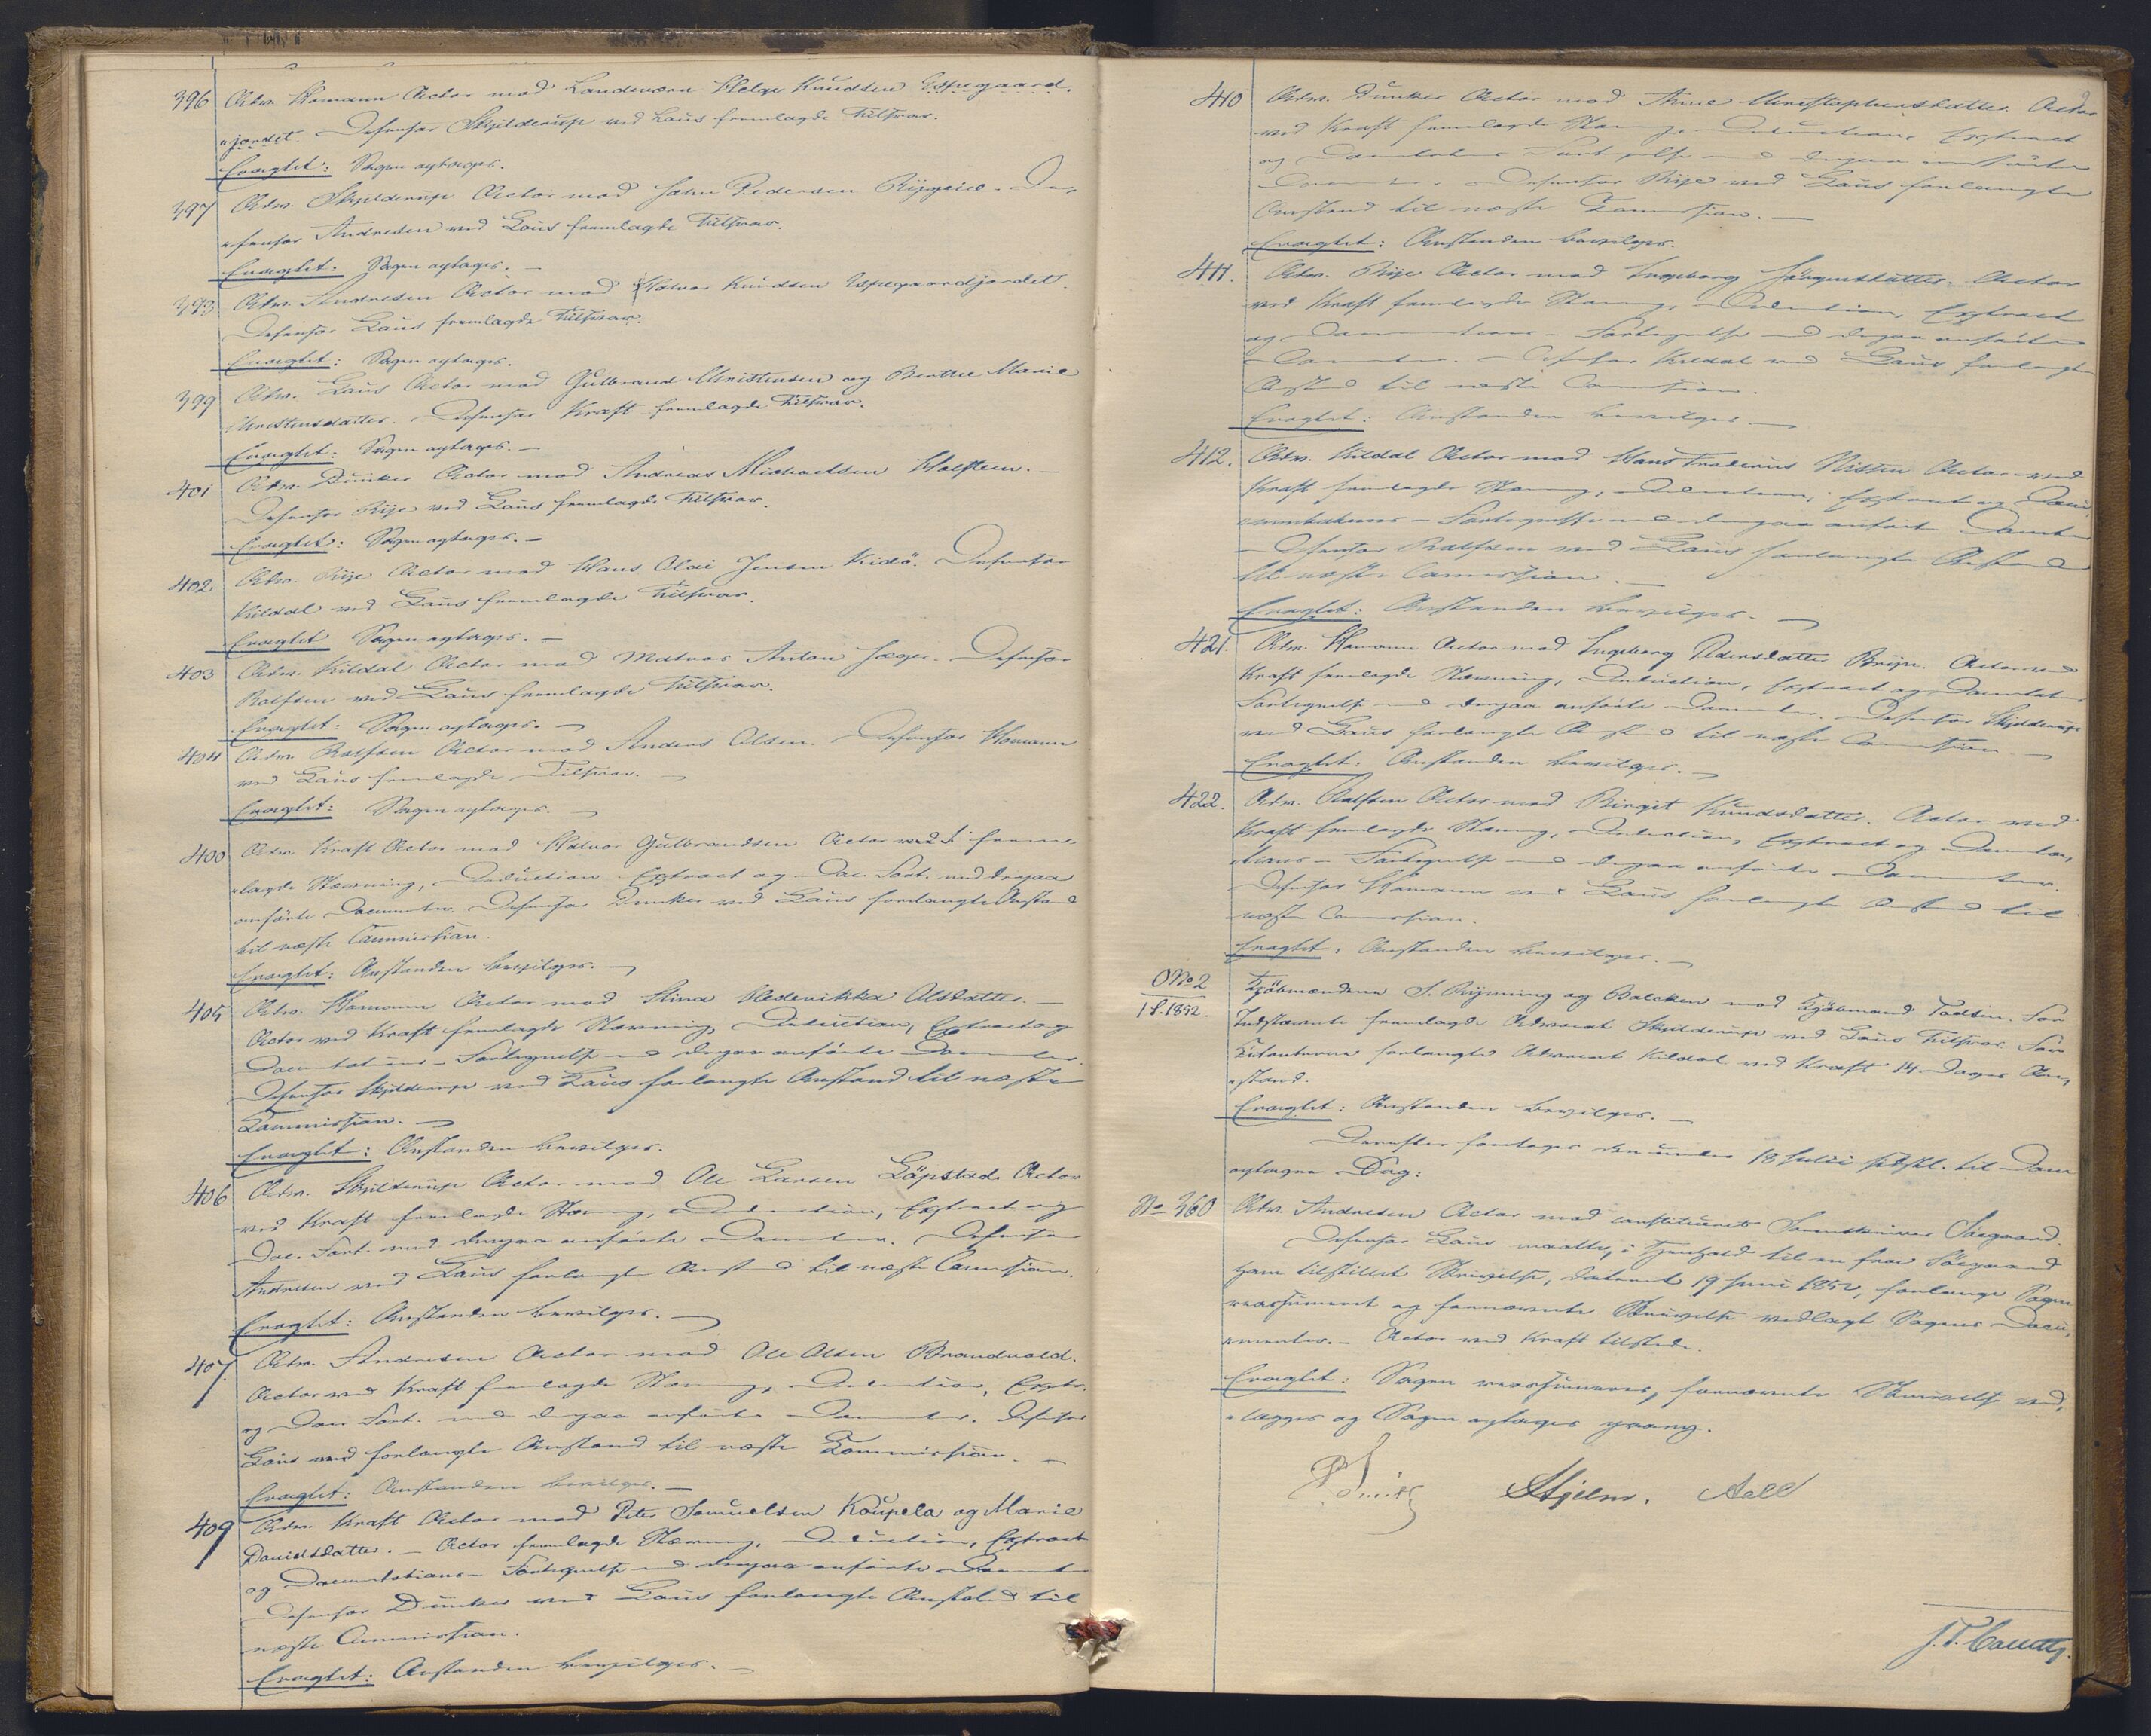 396 Adv. Homann Actor mod Landeværn Helge Knudsen Espegaard-
jordet. Defensor Skjelderup ved Laus fremlagde Tilsvar.
Eragtet: Sagen optages.
397 Adv. Skjelderup Actor mod John Pedersen Rijgsie. De-
fensor Andresen ved Laus fremlagde Tilsvar.
Eragtet: Sagen optages. —
398 Adv. Andresen Actor mod Halvor Knudsen Espegaardjordet.
Defensor Laus fremlagde Tilsvar.
Eragtet: Sagen optages.
399 Adv. Laus Actor mod Gulbrand Christensen og Berthe Marie
Christensdatter. Defensor Kraft fremlagde Tilsvar.
Eragtet: Sagen optages. —
401 Adv. Dunker Actor mod Andreas Michaelsen Holstein. —
Defensor Rije ved Laus fremlagde Tilsvar.
Eragtet: Sagen optages. —
402 Adv. Rije Actor mod Hans Olai Jensen Kidö. Defensor
Kildal ved Laus fremlagde Tilsvar.
Eragtet Sagen optages. —
403 Adv. Kildal Actor mod Matros Anton Jæger. Defensor
Rolfsen ved Laus fremlagde Tilsvar.
Eragtet: Sagen optages. —
404 Adv. Rolfsen Actor mod Anders Olsen. Defensor Homann
ved Laus fremlagde Tilsvar. —
Eragtet: Sagen optages. —
400 Adv. Kraft Actor mod Halvor Gulbrandsen Actor frem-
lagde Stævning, Deduction Extract og Doc. Fort. med derpaa
anförte Documenter. Defensor Dunker ved Laus forlangte Anstand
til næste Commission.
Eragtet: Anstanden bevilges. —
405 Adv. Homann Actor mod Stina Hedevikka Olsdatter. —
Actor ved Kraft fremlagde Stævning, Deduction, Extract og
Documentations-Fortegnelse med derpaa anförte Documenter.
Defensor Skjelderup ved Laus forlangte Anstand til næste
Commission. —
Eragtet: Anstanden bevilges.
406 Adv. Skjelderup Actor mod Ole Larsen Löpstad. Actor
ved Kraft fremlagde Stævning, Deduction, Extract og
Doc. Fort. med derpaa anförte Documenter. Defensor
Andresen ved Laus forlangte Anstand til næste Commission.
Eragtet: Anstanden bevilges. —
407. Adv. Andresen Actor mod Ole Olsen Brandvold.
Actor ved Kraft fremlagde Stævning, Deduction, Extr.
og Doc. Fort. med derpaa anförte Documenter. Defensor
Laus ved forlangte Anstand til næste Commission. —
Eragtet: Anstanden bevilges. —
409 Adv. Kraft Actor mod Peter Samuelsen Koupela og Marie
Davidsdatter. — Actor fremlagde Stævning, Deduction, Extract
og Documentations-Fortegnelse med derpaa anförte Documenter
Defensor Dunker ved Laus forlangte Anstand til
næste Commission.
Eragtet: Anstanden bevilges. —
410 Adv. Dunker Actor mod Anne Christophersdatter. Actor
ved Kraft fremlagde Stævning, Deduction, Extract
og Documentations Fortegnelse med derpaa anförte
Documenter. Defensor Rije ved Laus forlangte
Anstand til næste Commission. —
Eragtet: Anstanden bevilges.
411. Adv. Rije Actor mod Ingeborg Jörgensdatter. Actor
ved Kraft fremlagde Stævning, Deduction, Extract
og Documentations-Fortegnelse med derpaa anförte
Documenter. Defensor Kildal ved Laus forlangte
Anstand til næste Commission.
Eragtet: Anstanden bevilges. —
412. Adv. Kildal Actor mod Hans Frederus Nilsen Actor ved
Kraft fremlagde Stævning, Deduction, Extract og Docu-
mentations-Fortegnelse med derpaa anförte Documenter
Defensor Rolfsen ved Laus forlangte Anstand
til næste Commission. —
Eragtet: Anstanden bevilges. —
421. Adv. Homann Actor mod Ingeborg Pedersdatter Brije. Actor ved
Kraft fremlagde Stævning, Deduction, Extract og Documentat.
Fortegnelse med derpaa anförte Documenter. Defensor Skjelderup
ved Laus forlangte Anstand til næste Commission —
Eragtet. Anstanden bevilges. —
422. Adv. Rolfsen Actor mod Birgit Knudsdatter. Actor ved
Kraft fremlagde Stævning, Deduction, Extract og Documenta-
tions-Fortegnelse med derpaa anförte Documenter.
Defensor Homann ved Laus forlangte Anstand til
næste Commission.
Eragtet: Anstanden bevilges. —
O No 2
1 S. 1852.
Kjöbmændene S. Rijnning og Balchen mod Kjöbmand Todsen. For
Indstævnte fremlagde Advocat Skjelderup ved Laus Tilsvar. For
Citanterne forlangte Advocat Kildal ved Kraft 14 Dages An-
stand.
Eragtet: Anstanden bevilges. —
Derefter foretages den under 13 Julii sidstl. til Dom
optagne Sag:
No 360 Adv. Andresen Actor mod constitueret Sorenskriver Söegaard.
Defensor Laus maatte, i Henhold til en fra Söegaard
ham tilstillet Skrivelse, dateret 19 Juni 1852, forlange Sagen
reassumeret og fornævnte Skrivelse vedlagt Sagens Docu-
menter. — Actor ved Kraft tilstede.
Eragtet: Sagen reassumeres, fornævnte Skrivelse ved-
lægges og Sagen optages paany.
Hjelm. Aall